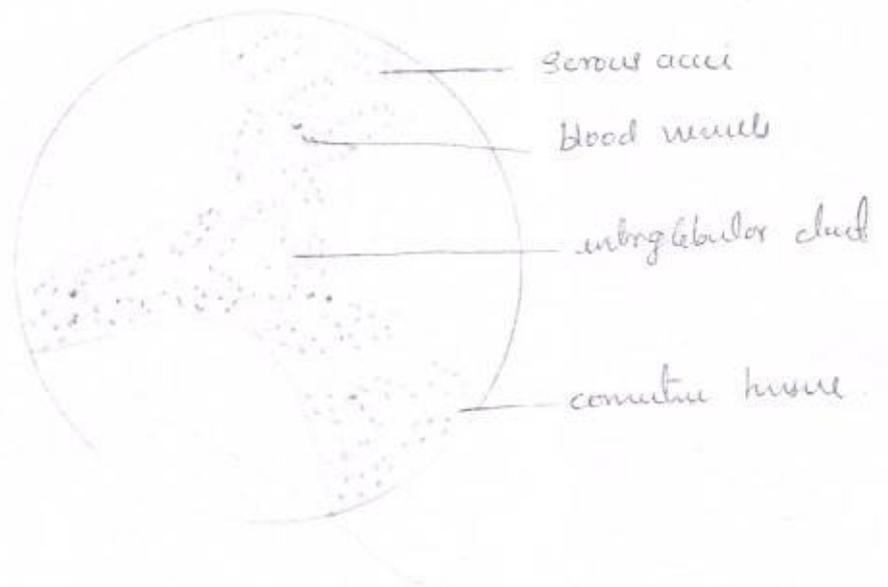 serous acini
blood vessels
interlobular duct
connective tissue